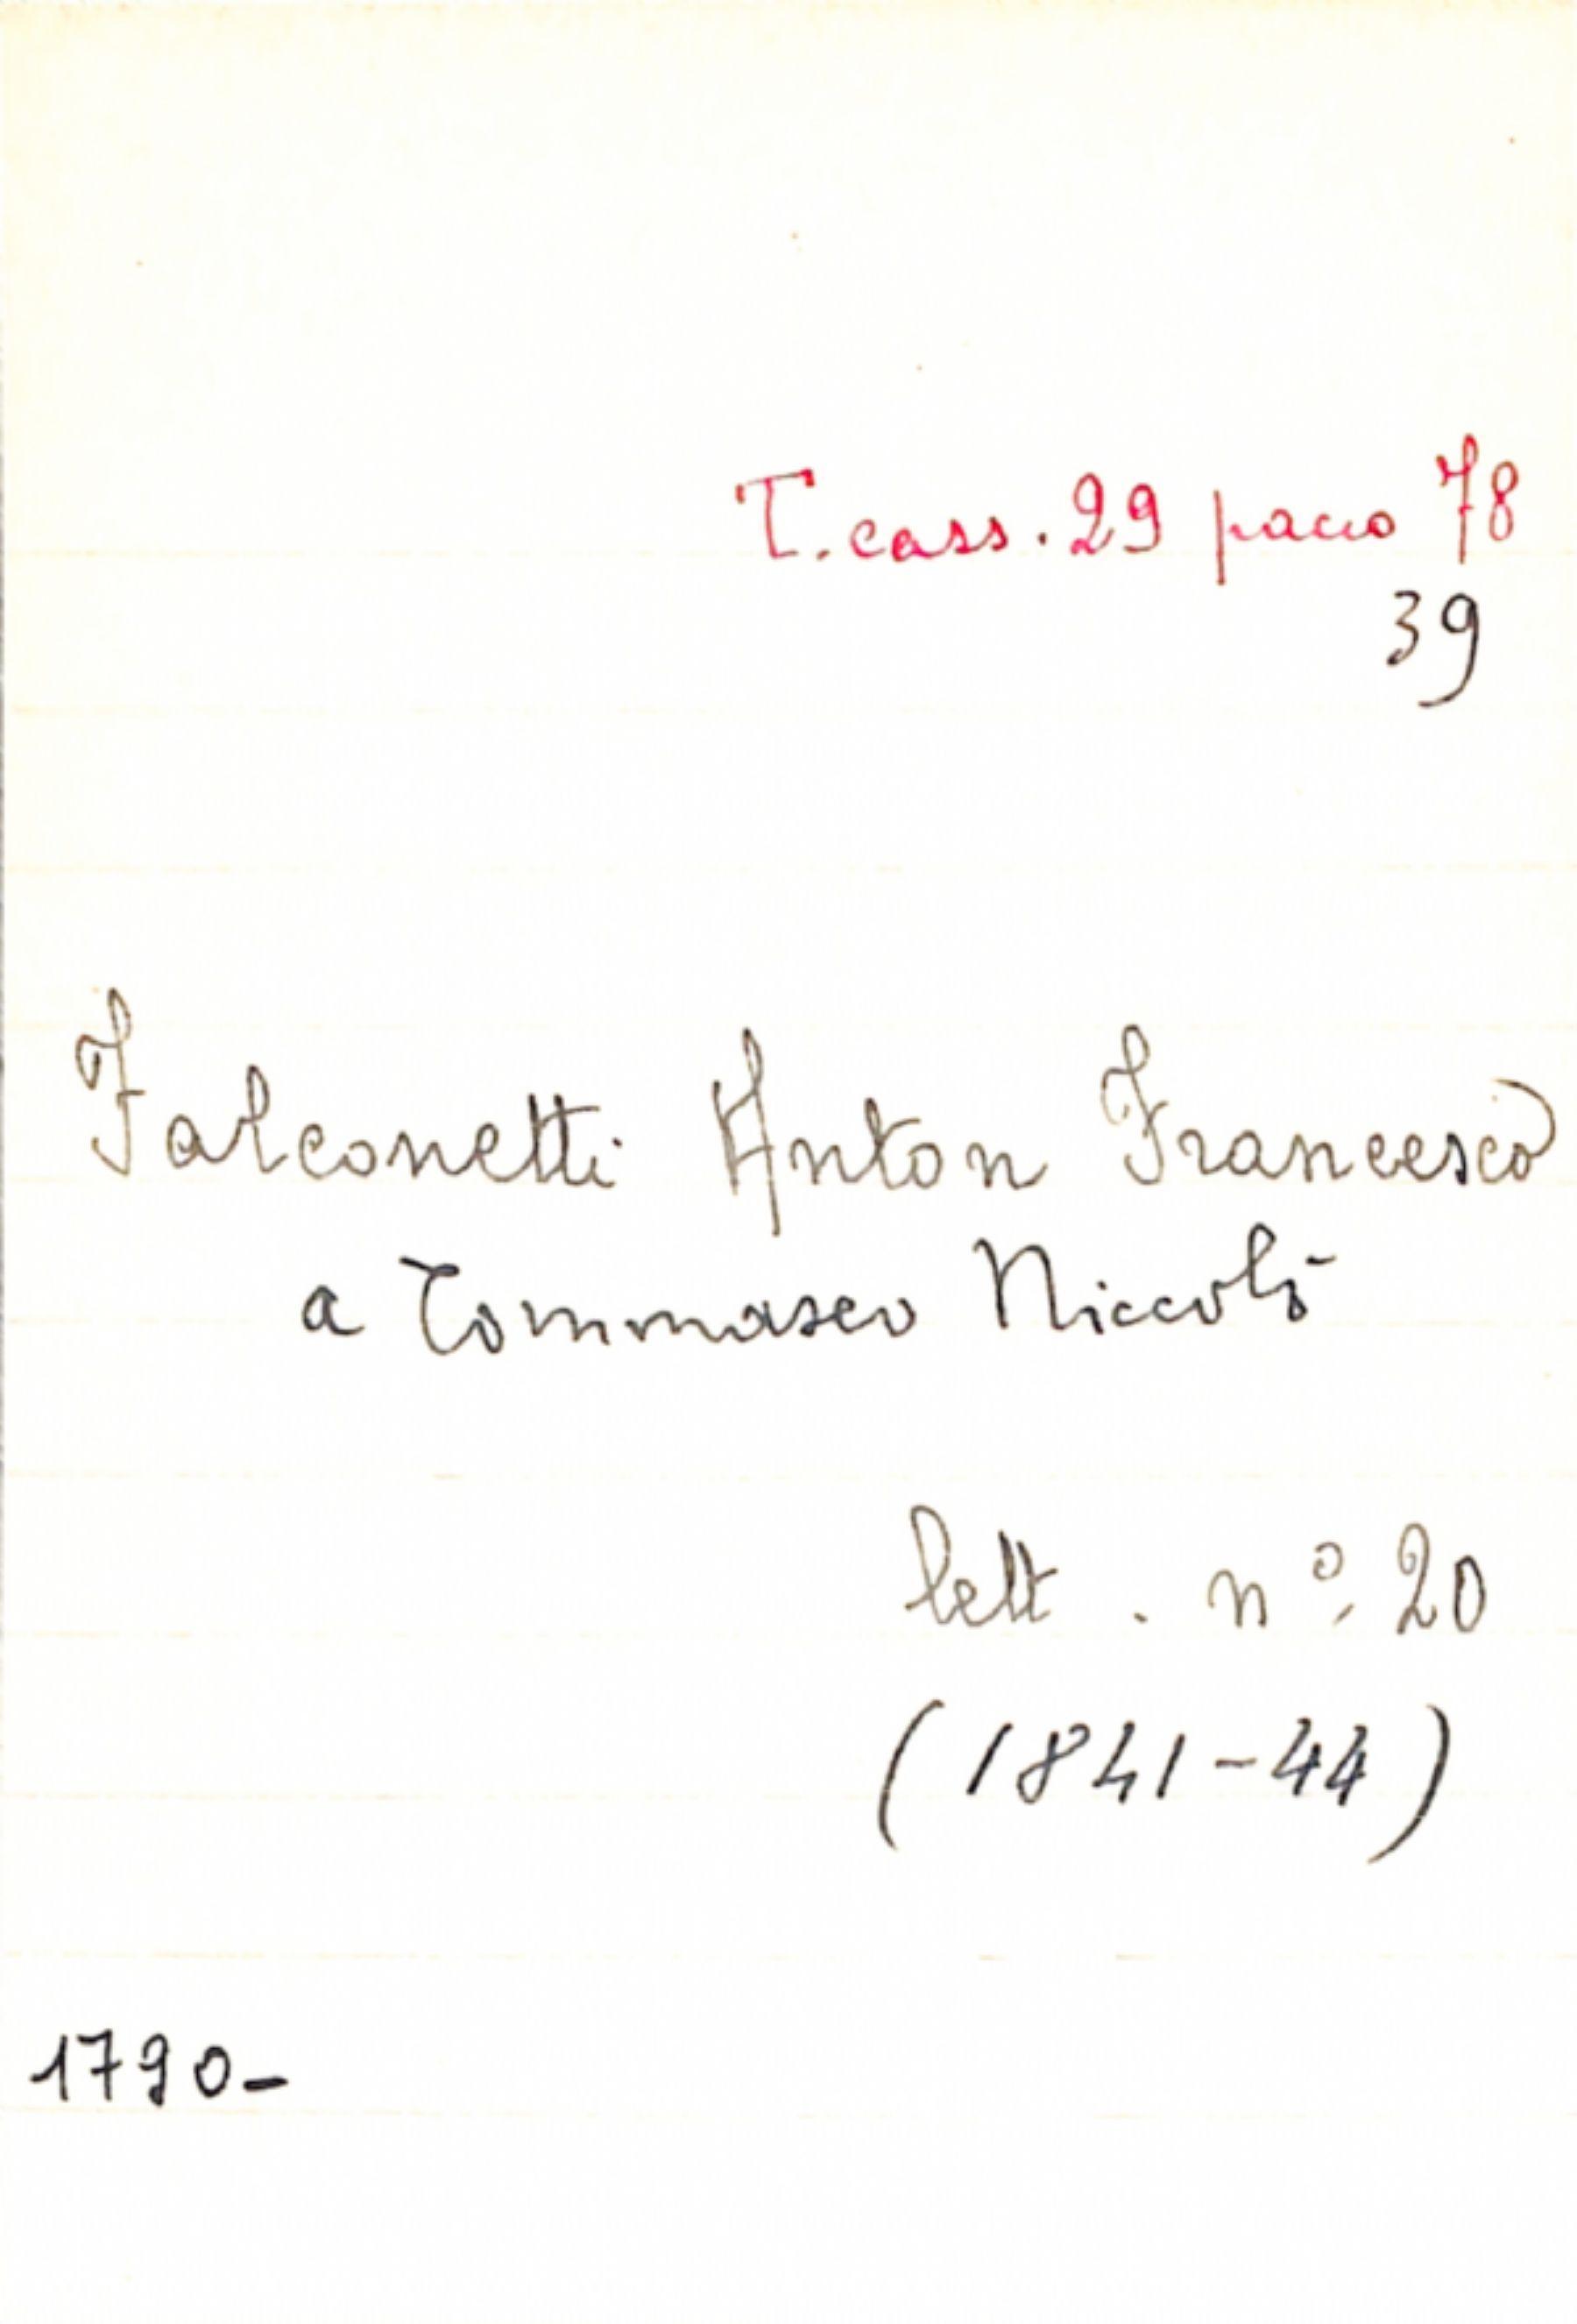 T. cass. 29 pacco 78
39
Falconetti Anton Francesco
a Tommaseo Niccolò
lett. nº. 20
(1841-44)
1790-